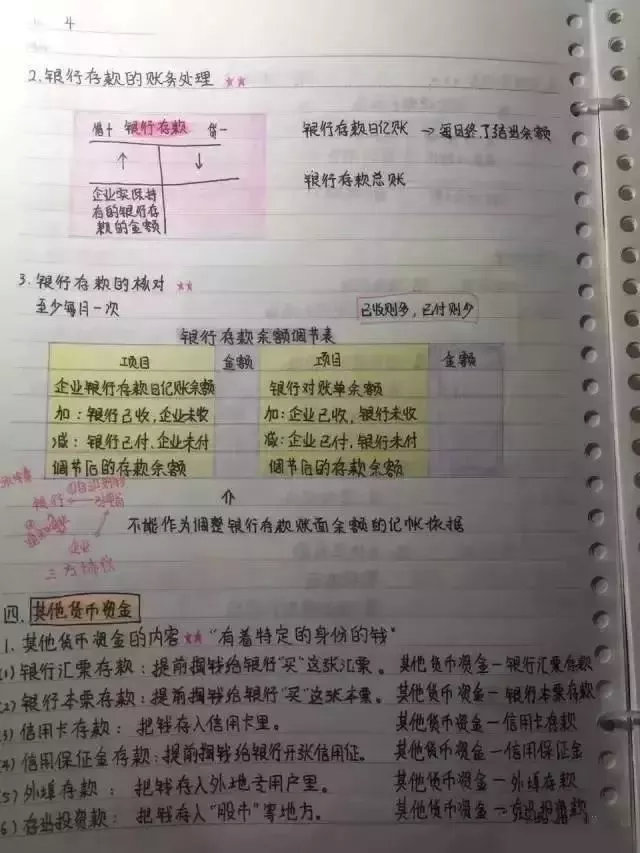 4
2.银行存款的账务处理 ★★
借+ 银行存款 贷-
↑ ↓
企业实际持有的银行存款的金额
银行存款日记账 → 每日终了结出余额
银行存款总账
3.银行存款的核对 ★★
至少每月一次
已收则多,已付则少
银行存款余额调节表
项目 金额 项目 金额
企业银行存款日记账余额 银行对账单余额
加:银行已收,企业未收 加:企业已收,银行未收
减:银行已付,企业未付 减:企业已付,银行未付
调节后的存款余额 调节后的存款余额
银行
企业
三方
不能作为调整银行存款账面余额的记帐依据
四.其他货币资金
1.其他货币资金的内容★★ "有着特定的身份的钱"
(1)银行汇票存款:提前掏钱给银行"买"这张汇票。 其他货币资金—银行汇票存款
(2)银行本票存款:提前掏钱给银行"买"这张本票。 其他货币资金—银行本票存款
(3)信用卡存款: 把钱存入信用卡里。 其他货币资金—信用卡存款
(4)信用保证金存款:提前掏钱给银行开张信用证。 其他货币资金—信用保证金
(5)外埠存款: 把钱存入外地专用户里。 其他货币资金—外埠存款
(6)存出投资款: 把钱存入"股市"等地方。 其他货币资金—存出投资款